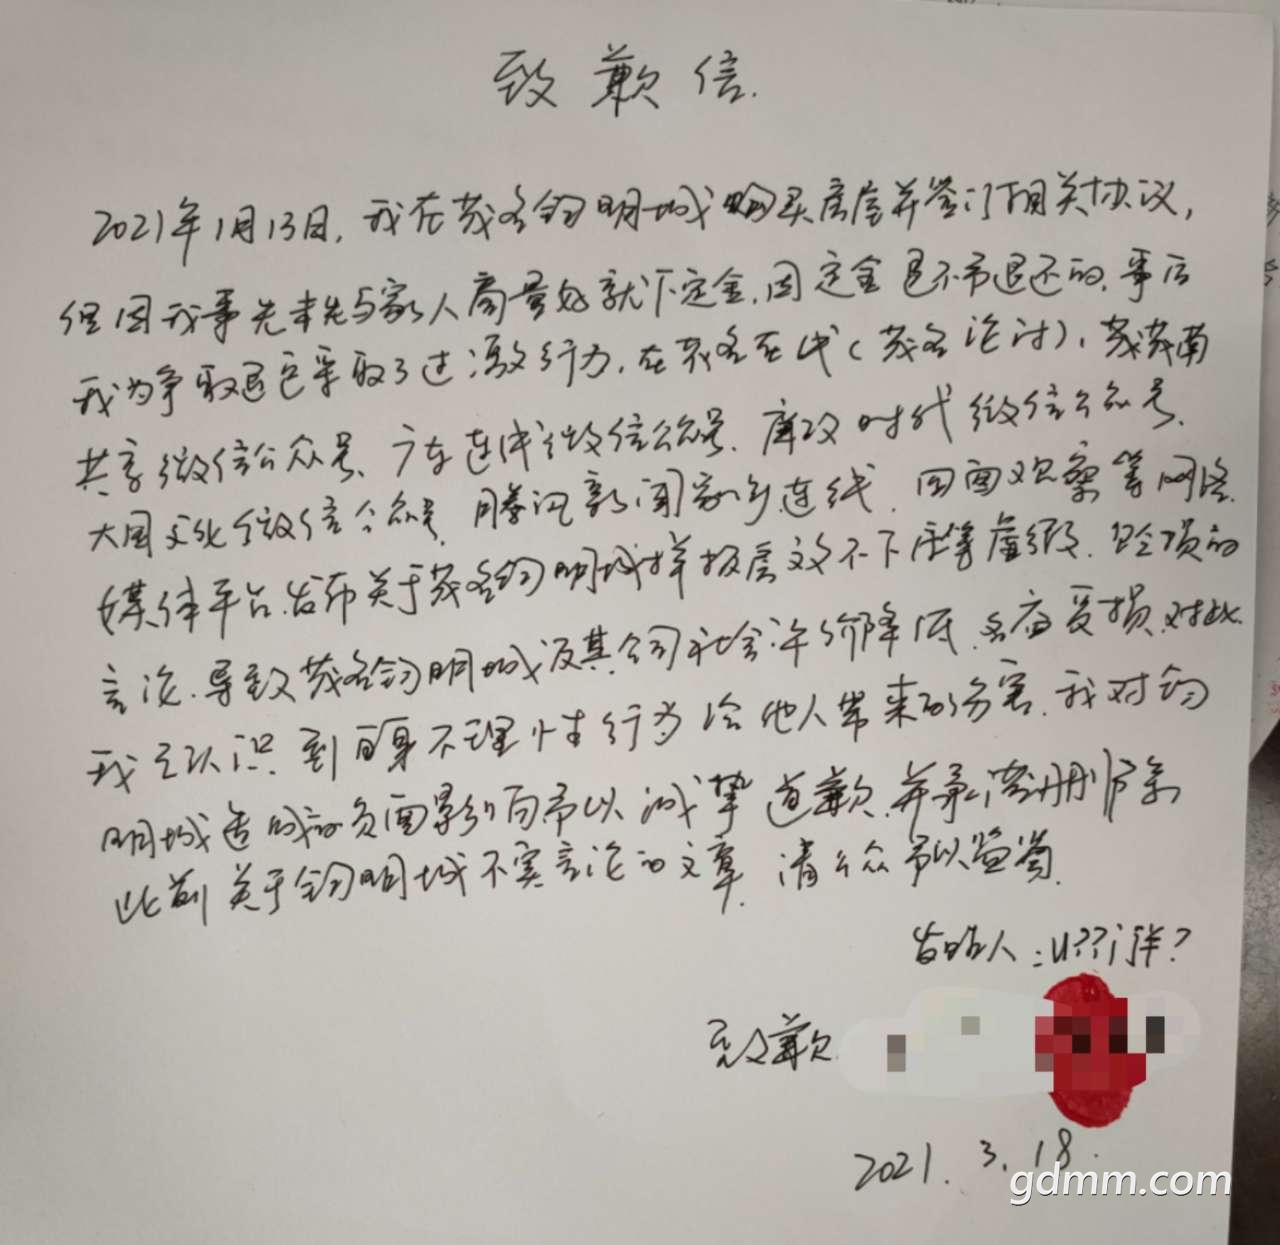 致歉信.
2021年1月13日，我在茂名钧明城购买房屋并签订相关协议，
但因我事先未先与家人商量好就下定金，因定金是不予退还的，事后
我为争取退定采取了过激行为，在茂名在线（茂名论讨）、茂茂南
共享微信公众号、广东连线微信公众号、廉政时代微信公众号、
大国文化微信公众号、腾讯新闻家乡连线、四面观察等网络
媒体平台发布关于茂名钧明城样板房文不下等虚假、的
言论，导致茂名钧明城及其公司社会评价降低、名商受损，对此
我已认识到自身不理性行为给他人带来的伤害，我对钧
明城造成的负面影响予以诚挚道歉，并承诺册除
此前关于钧明城不实言论的文章，请公众予以鉴
人：
致歉
2021.3.18.
gdmm.com